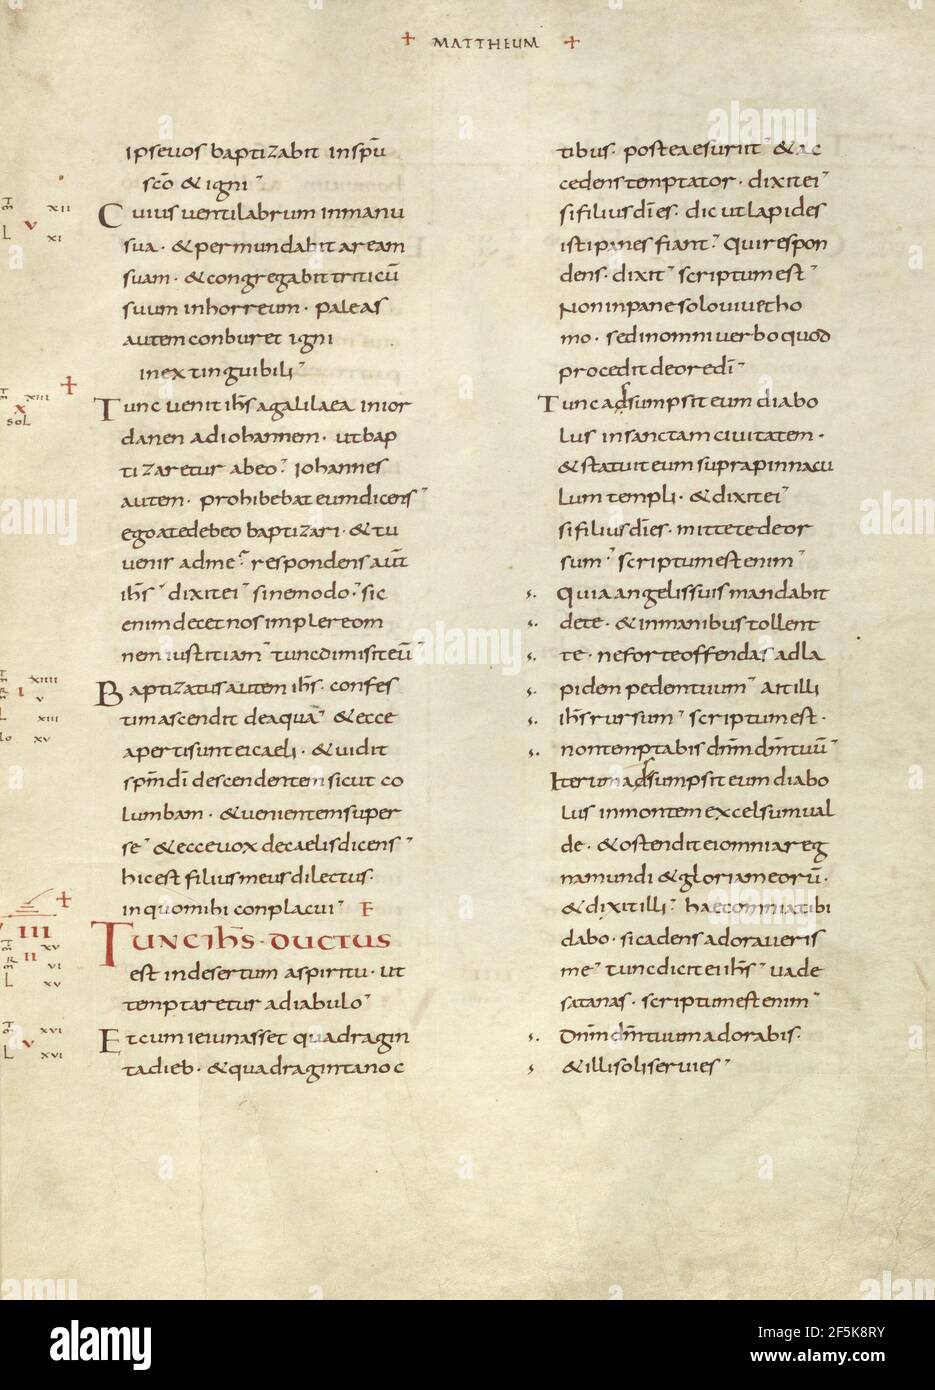 + MATTHEUM +
ipse vos baptizabit in spū
scō & igni
Cuius ventilabrum in manu
sua · & permundabit aream
suam · & congregabit triticū
suum in horreum · paleas
autem conburet igni
inextinguibili
Tunc venit ihs a galilaea in ior
danen ad iohannem · ut bap
tizaretur ab eo · iohannes
autem · prohibebat eum dicens
ego a te debeo baptizari · & tu
venis ad me · respondens aut
ihs dixit ei sine modo · sic
enim decet nos implere om
nem iustitiam tunc dimisit eū
Baptizatus autem ihs · confes
tim ascendit de aqua & ecce
aperti sunt ei caeli · & vidit
spm di descendentem sicut co
lumbam · & venientem super
se & ecce vox de caelis dicens
hic est filius meus dilectus ·
in quo mihi conplacui F
TUNC IHS · DUCTUS
est in desertum a spiritu · ut
temptaretur a diabulo
Et cum ieiunasset quadragin
ta dieb · & quadraginta noc
tibus · postea esuriit & ac
cedens temptator · dixit ei
si filius di es · dic ut lapides
isti panes fiant · qui respon
dens · dixit scriptum est
Non in pane solo vivet ho
mo · sed in omni verbo quod
procedit de ore di
Tunc adsumpsit eum diabo
lus in sanctam civitatem ·
& statuit eum supra pinnacu
lum templi · & dixit ei
si filius di es · mitte te deor
sum · scriptum est enim
Quia angelis suis mandabit
de te · & in manibus tollent
te · ne forte offendas ad la
piden pedem tuum ait illi
ihs rursum scriptum est ·
non temptabis dnm dm tuū
Iterum adsumpsit eum diabo
lus in montem excelsum val
de · & ostendit ei omnia reg
na mundi & gloriam eorū ·
& dixit illi · haec omnia tibi
dabo · si cadens adoraveris
me tunc dicit ei ihs vade
satanas · scriptum est enim
Dnm dm tuum adorabis ·
& illi soli servies
XII
V
L XI
XIII
X
SOL
XIIII
I V
XIII
XV
III
XV
II VI
L XV
XVI
V
L XVI
alamy
alamy
alamy
alamy
Image ID: 2F5K8RY
www.alamy.com